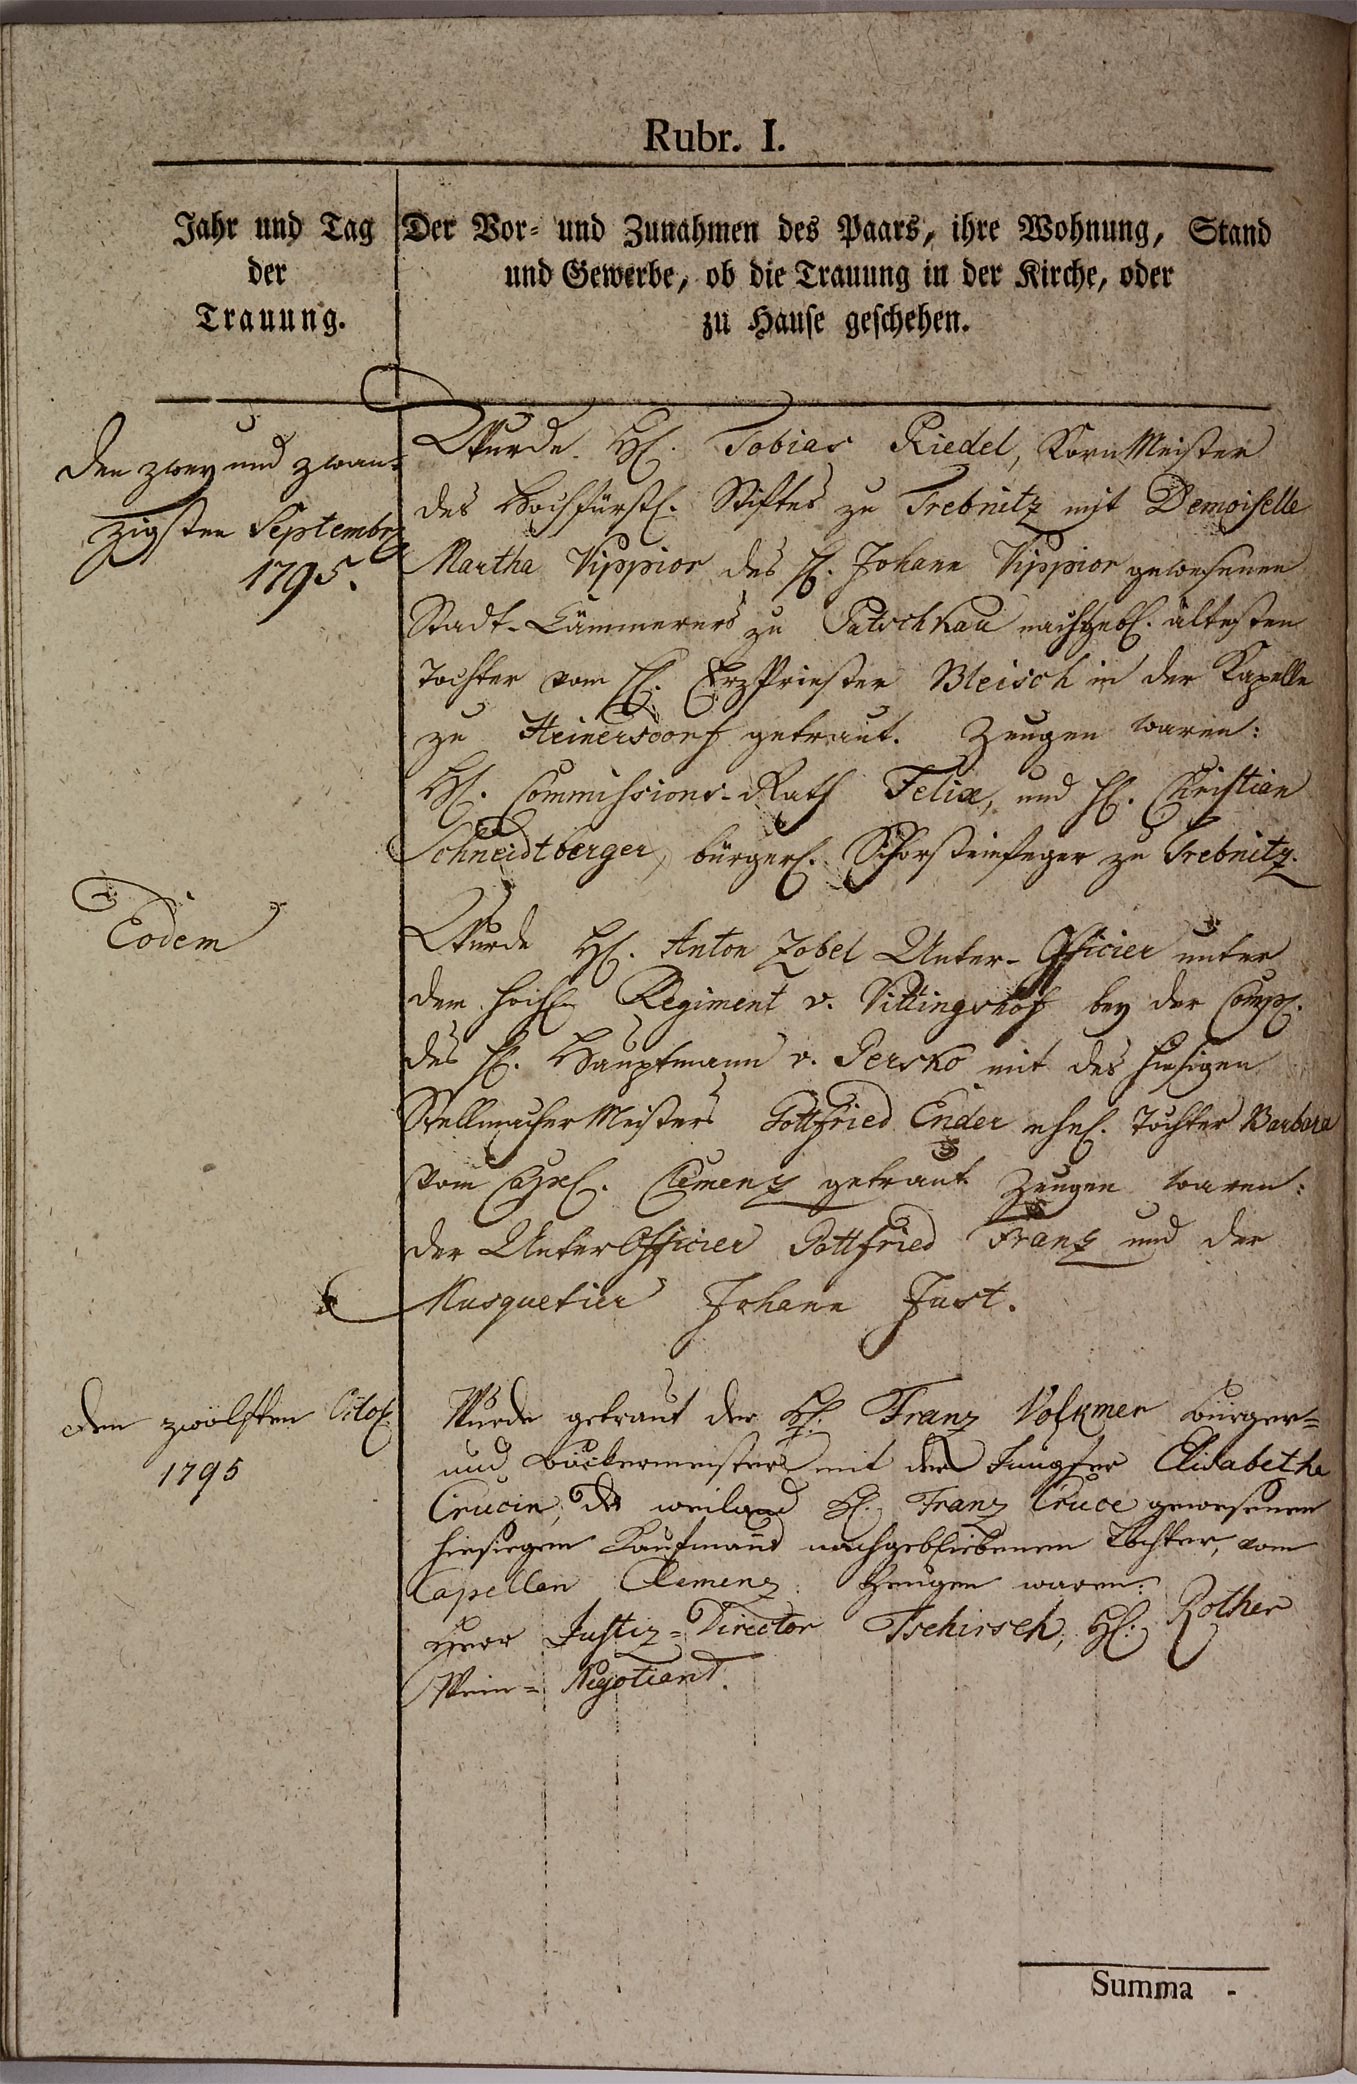 Rubr. I.
Jahr und Tag
der
Trauung.
Der Vor- und Zunahmen des Paars, ihre Wohnung, Stand
und Gewerbe, ob die Trauung in der Kirche, oder
zu Hause geschehen.
Den zwey und zwan-
zigsten Septembr
1795.
Wurde H. Tobias Riedel, Korn Meister
des Hochfürstl. Stiftes zu Trebnitz mit Demoiselle
Martha Vippior des H. Johann Vippior gewesenen
Stadt-Cämmerers zu Patschkau nachgebl. ältesten
Tochter vom H. ErzPriester Bleisch in der Kapelle
zu Heinersdorf getraut. Zeugen waren:
H. Commissions-Rath Felix, und H. Christian
Schneidtberger, bürgerl. Schorsteinfeger zu Trebnitz.
Eodem
Wurde H. Anton Zobel Unter-Officier unter
dem hochl. Regiment v. Vittingshof bey der Comp.
des H. Hauptmann v. Persko mit des hiesigen
Stellmacher Meisters Gottfried Ender ehel. Tochter Barbara
vom Capel. Clemenz getraut Zeugen waren:
der UnterOfficier Gottfried Franz und der
Musquetier Johann Just.
den zwölften 8tbr.
1795
Wurde getraut der H. Franz Volkmer Bürger-
und Bäckermeister mit der Jungfer Elisabetha
Crucin, des weiland H. Franz Cruce gewesenen
hiesiegen Kaufmann nachgebliebenen Tochter, vom
Capellan Clemenz. Zeugen waren:
Herr Justiz-Director Tschirsch, H. Rother
Wein-Negotiant.
Summa -